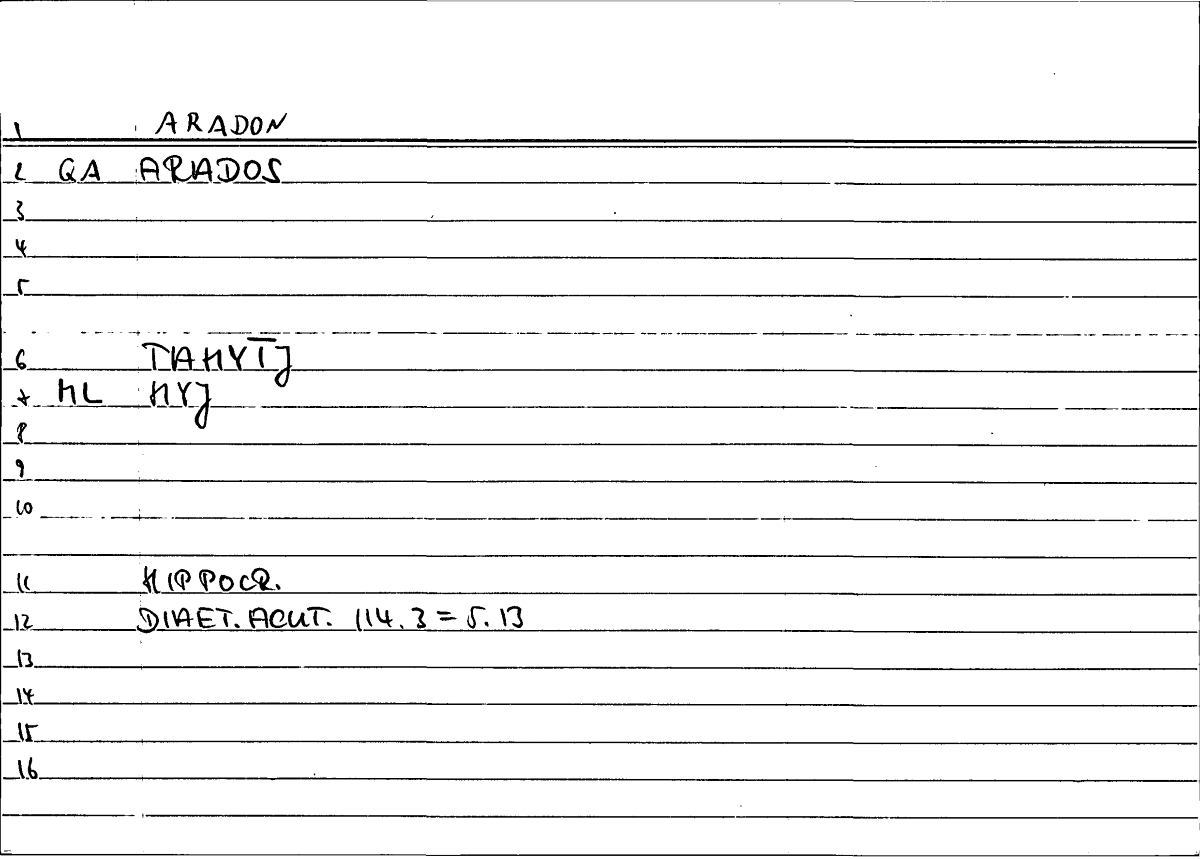 1 ARADON
2 QA ARADOS
3
4
5
6 TAHYĪJ
7 ML HYJ
8
9
10
11 HIPPOCR.
12 DIAET. ACUT. 114.3 = 5.13
13
14
15
16